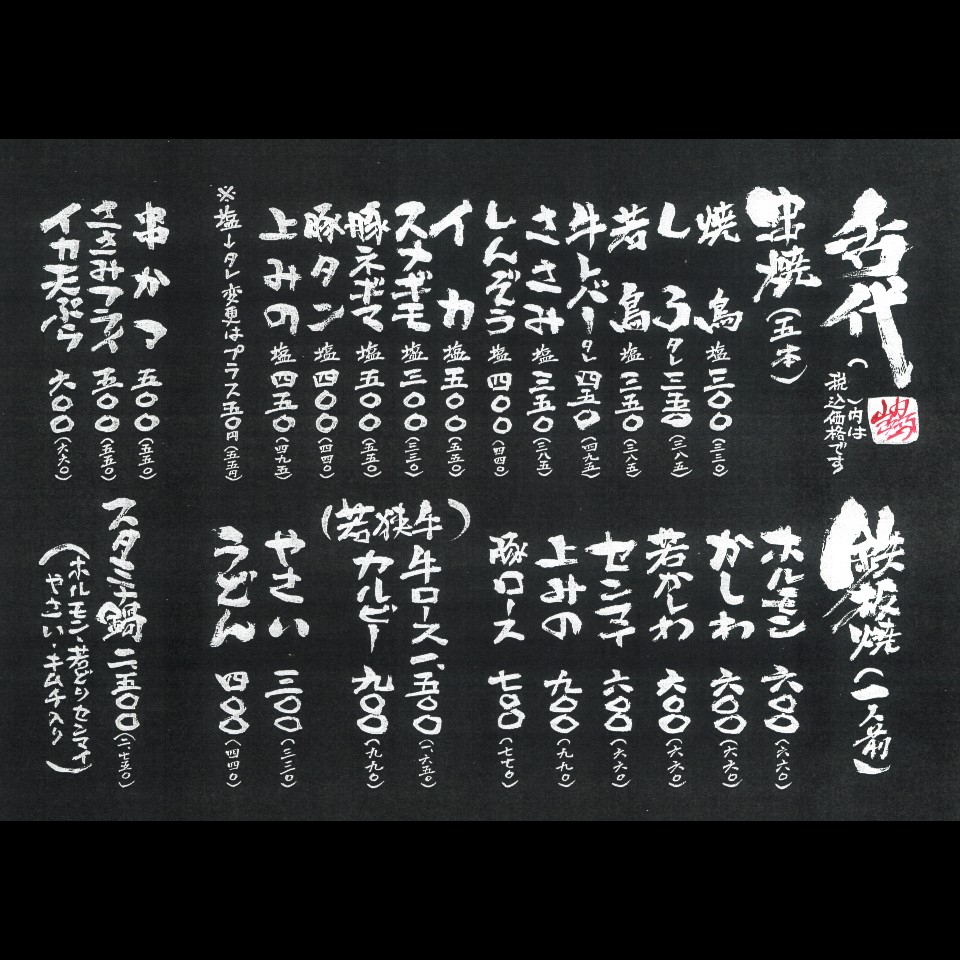 舌代
( )内は
税込価格です
串焼(五本)
焼鳥 塩 三〇〇(三三〇)
しろ タレ 三五〇(三八五)
若鳥 塩 三五〇(三八五)
牛レバー タレ 四五〇(四九五)
ささみ 塩 三五〇(三八五)
しんぞう 塩 四〇〇(四四〇)
イカ 塩 五〇〇(五五〇)
スナギモ 塩 三〇〇(三三〇)
豚ネギマ 塩 五〇〇(五五〇)
豚タン 塩 四〇〇(四四〇)
上みの 塩 四五〇(四九五)
※塩→タレ変更はプラス五〇円(五五円)
串かつ 五〇〇(五五〇)
ささみフライ 五〇〇(五五〇)
イカ天ぷら 六〇〇(六六〇)
鉄板焼(一人前)
ホルモン 六〇〇(六六〇)
かしわ 六〇〇(六六〇)
若かしわ 六〇〇(六六〇)
センマイ 六〇〇(六六〇)
上みの 九〇〇(九九〇)
豚ロース 七〇〇(七七〇)
(若狭牛)
牛ロース 一、五〇〇(一、六五〇)
カルビー 九〇〇(九九〇)
やさい 三〇〇(三三〇)
うどん 四〇〇(四四〇)
スタミナ鍋 二、五〇〇(二、七五〇)
(ホルモン・若どり・センマイ
やさい・キムチ入り)